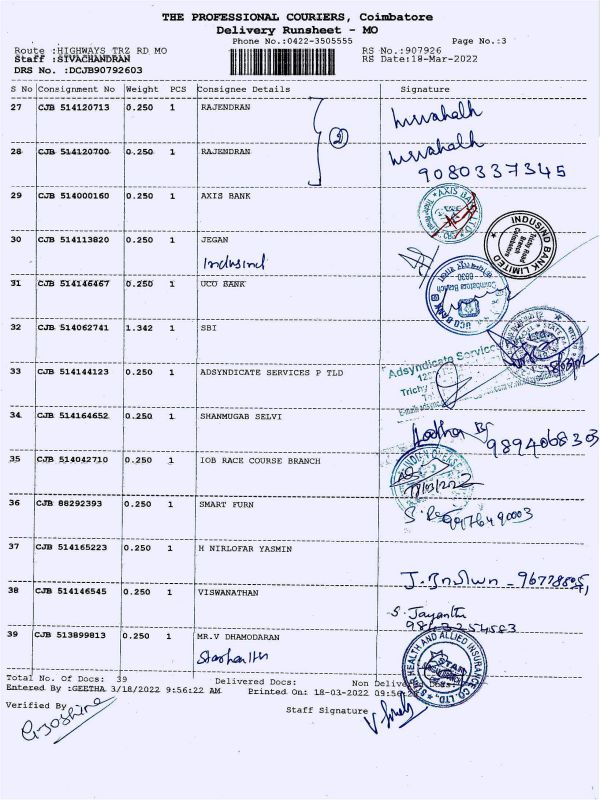 THE PROFESSIONAL COURIERS, Coimbatore
Delivery Runsheet - MO
Phone No.:0422-3505555
Page No.:3
Route :HIGHWAYS TRZ RD MO
RS No.:907926
Staff :SIVACHANDRAN
RS Date:18-Mar-2022
DRS No. :DCJB90792603
S No Consignment No Weight PCS Consignee Details Signature
27 CJB 514120713 0.250 1 RAJENDRAN
2
28 CJB 514120700 0.250 1 RAJENDRAN
9080337345
29 CJB 514000160 0.250 1 AXIS BANK
AXIS BANK LTD.
30 CJB 514113820 0.250 1 JEGAN
Indusind
INDUSIND BANK LIMITED
Trichy Road
Branch
Coimbatore
31 CJB 514146467 0.250 1 UCO BANK
UCO BANK
0930
Coimbatore Branch
32 CJB 514062741 1.342 1 SBI
33 CJB 514144123 0.250 1 ADSYNDICATE SERVICES P TLD
Adsyndicate Services
Trichy
34 CJB 514164652 0.250 1 SHANMUGAB SELVI
9894068303
35 CJB 514042710 0.250 1 IOB RACE COURSE BRANCH
18/03/2022
36 CJB 88292393 0.250 1 SMART FURN
9976490003
37 CJB 514165223 0.250 1 H NIRLOFAR YASMIN
38 CJB 514146545 0.250 1 VISWANATHAN
S. Jayanthi
9843254583
39 CJB 513899813 0.250 1 MR.V DHAMODARAN
Starhealth
STAR HEALTH AND ALLIED INSURANCE CO. LTD.,
STAR
Total No. of Docs: 39 Delivered Docs: Non Delivered Docs:
Entered By :GEETHA 3/18/2022 9:56:22 AM Printed On: 18-03-2022 09:56:2
Verified By
Staff Signature